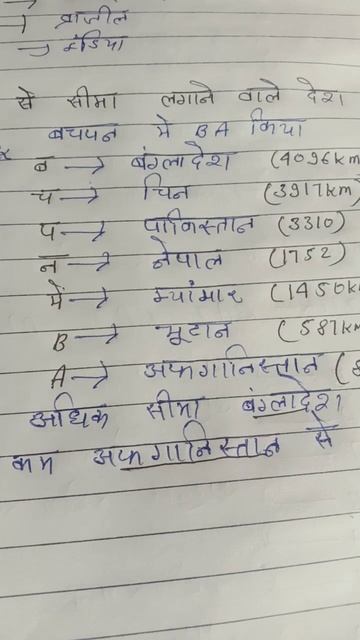 → ब्राजील
→ इंडिया
से सीमा लगाने वाले देश
बचपन में BA किया
ब → बंग्लादेश (4096km
च → चिन (3917km)
प → पाकिस्तान (3310)
न → नेपाल (1752)
में → म्यांमार (1450km
B → भूटान (587km
A → अफगानिस्तान (
अधिक सीमा बंग्लादेश
कम अफगानिस्तान से